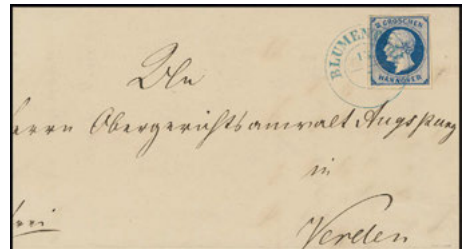 BLUMEN
GROSCHEN
HANNOVER
An
Herrn Obergerichtsanwalt Augspurg
in
frei
Verden